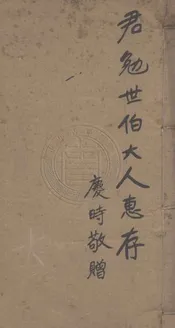 君勉世伯大人惠存
慶時敬贈